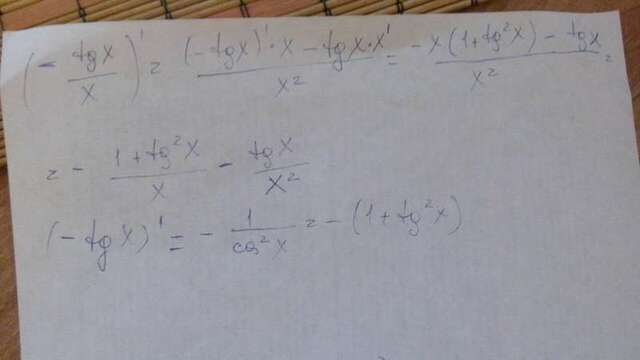 (- tgx/x)' = ((-tgx)'·x - tgx·x')/x² = (-x(1+tg²x) - tgx)/x² =
= - (1+tg²x)/x - tgx/x²
(-tgx)' = - 1/cos²x = -(1+tg²x)